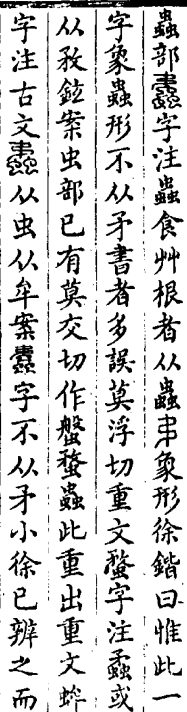 蟲部字注蟲食艸根者从蟲象形徐鍇曰惟此一
字象蟲形不从矛書者多誤莫浮切重文蝥字注蟊或
从敄鉉案虫部已有莫交切作螌蝥蟲此重出重文蛑
字注古文从虫从牟案字不从矛小徐已辨之而